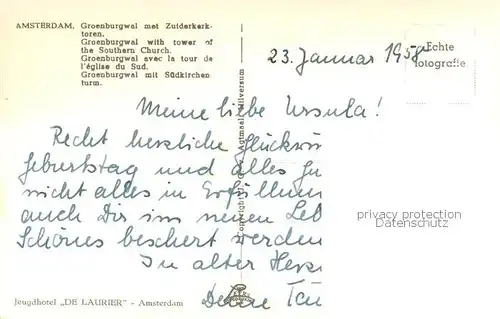 AMSTERDAM. Groenburgwal met Zuiderkerk-
toren.
Groenburgwal with tower of
the Southern Church.
Groenburgwal avec la tour de
l'église du Sud.
Groenburgwal mit Südkirchen
turm.
23. Januar 1958
Echte
fotografie
Meine liebe Ursula!
Recht herzliche Glückwün
Geburtstag und alles Gu
nicht alles in Erfüllun
auch Dir im neuen Leb
Schönes beschert werden
In alter Herz
Deine
privacy protection
Datenschutz
Jeugdhotel „DE LAURIER" - Amsterdam